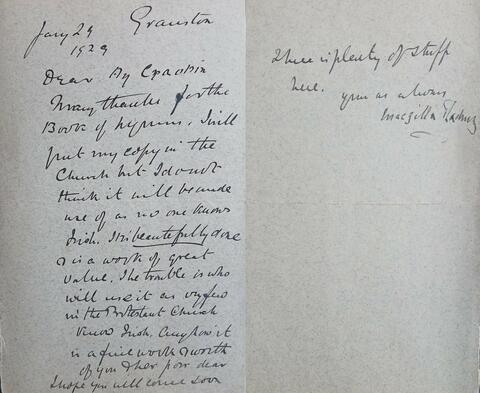 Jany 29 Granston
1929
Dear My Craobin
Many thanks for the
Book of hymns. I will
put my copy in the
Church but I do not
think it will be made
use of as no one knows
Irish. It is beautifully done
& is a work of great
value. The trouble is who
will use it as very few
in the Protestant Church
know Irish. Anyhow it
is a fine work & worth
of you & her poor dear
I hope you will come soon
There is plenty of stuff
here.
yours as always